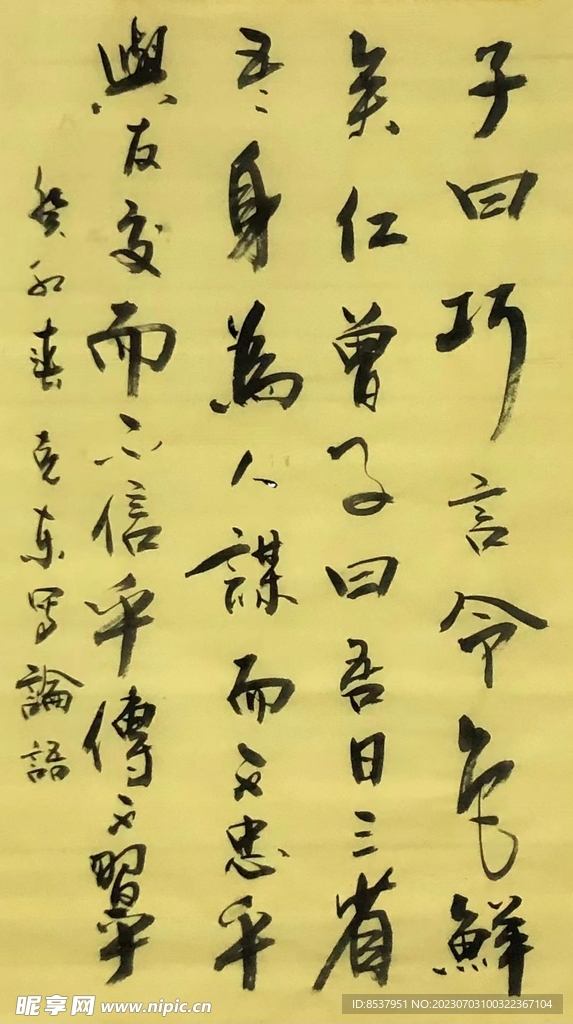 子曰巧言令色鮮
矣仁曾子曰吾日三省
吾身為人謀而不忠乎
與友交而不信乎傳不習乎
癸卯春克東寫論語
昵享网 www.nipic.cn
ID:8537951 NO:20230703100322367104